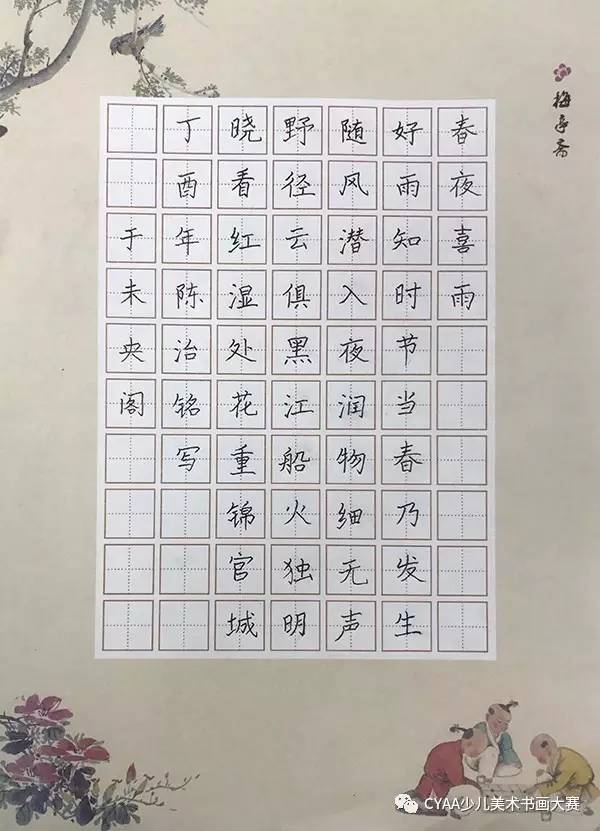 春夜喜雨
好雨知时节当春乃发生
随风潜入夜润物细无声
野径云俱黑江船火独明
晓看红湿处花重锦官城
丁酉年陈治铭写
于未央阁
CYAA少儿美术书画大赛